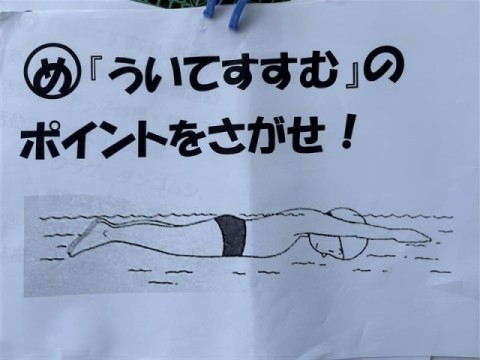 め『ういてすすむ』の
ポイントをさがせ！